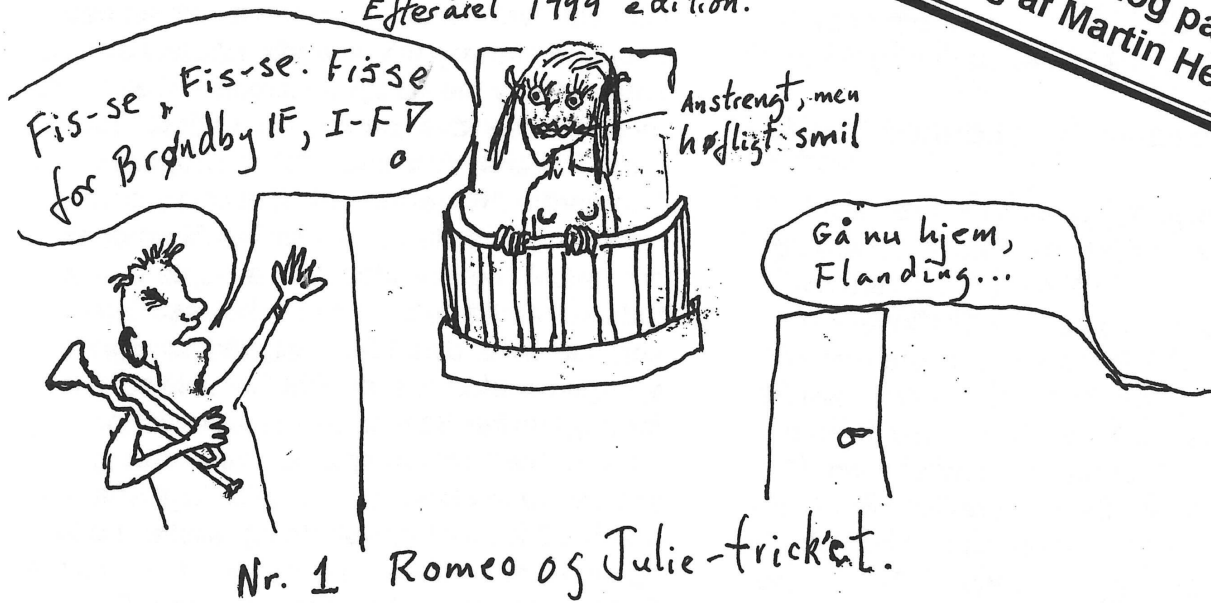 Efteråret 1999 edition.
og på
af Martin He
Fis-se, Fis-se. Fisse
for Brøndby IF, I-F!
Anstrengt, men
høfligt smil
Gå nu hjem,
Flanding...
Nr. 1 Romeo og Julie-trick'et.